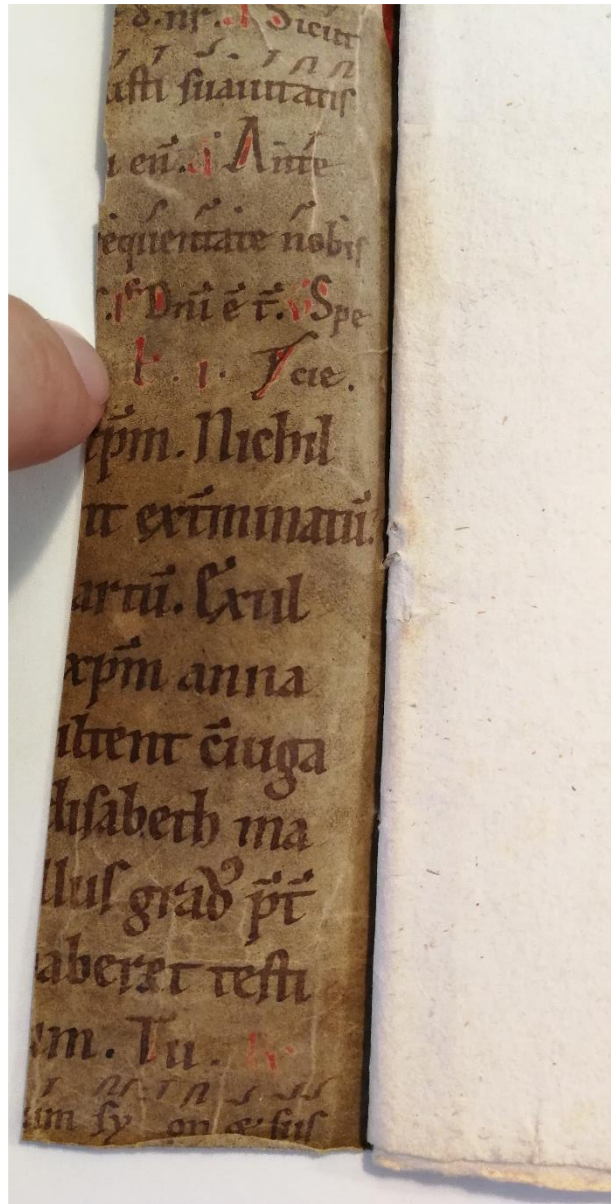 d. nr̄. Dicit
usti suauitatis
en̄. Ante
equentare nobis
Dn̄i ē t̄. Spe
cie.
xp̄m. Nichil
nt ext̄minatū.
artū. Exul
xp̄m anna
iltent c̄iuga
lisabeth ma
llus grad᷒ p̄t̄
aberet testi
um. Tu.
um sy on & sus